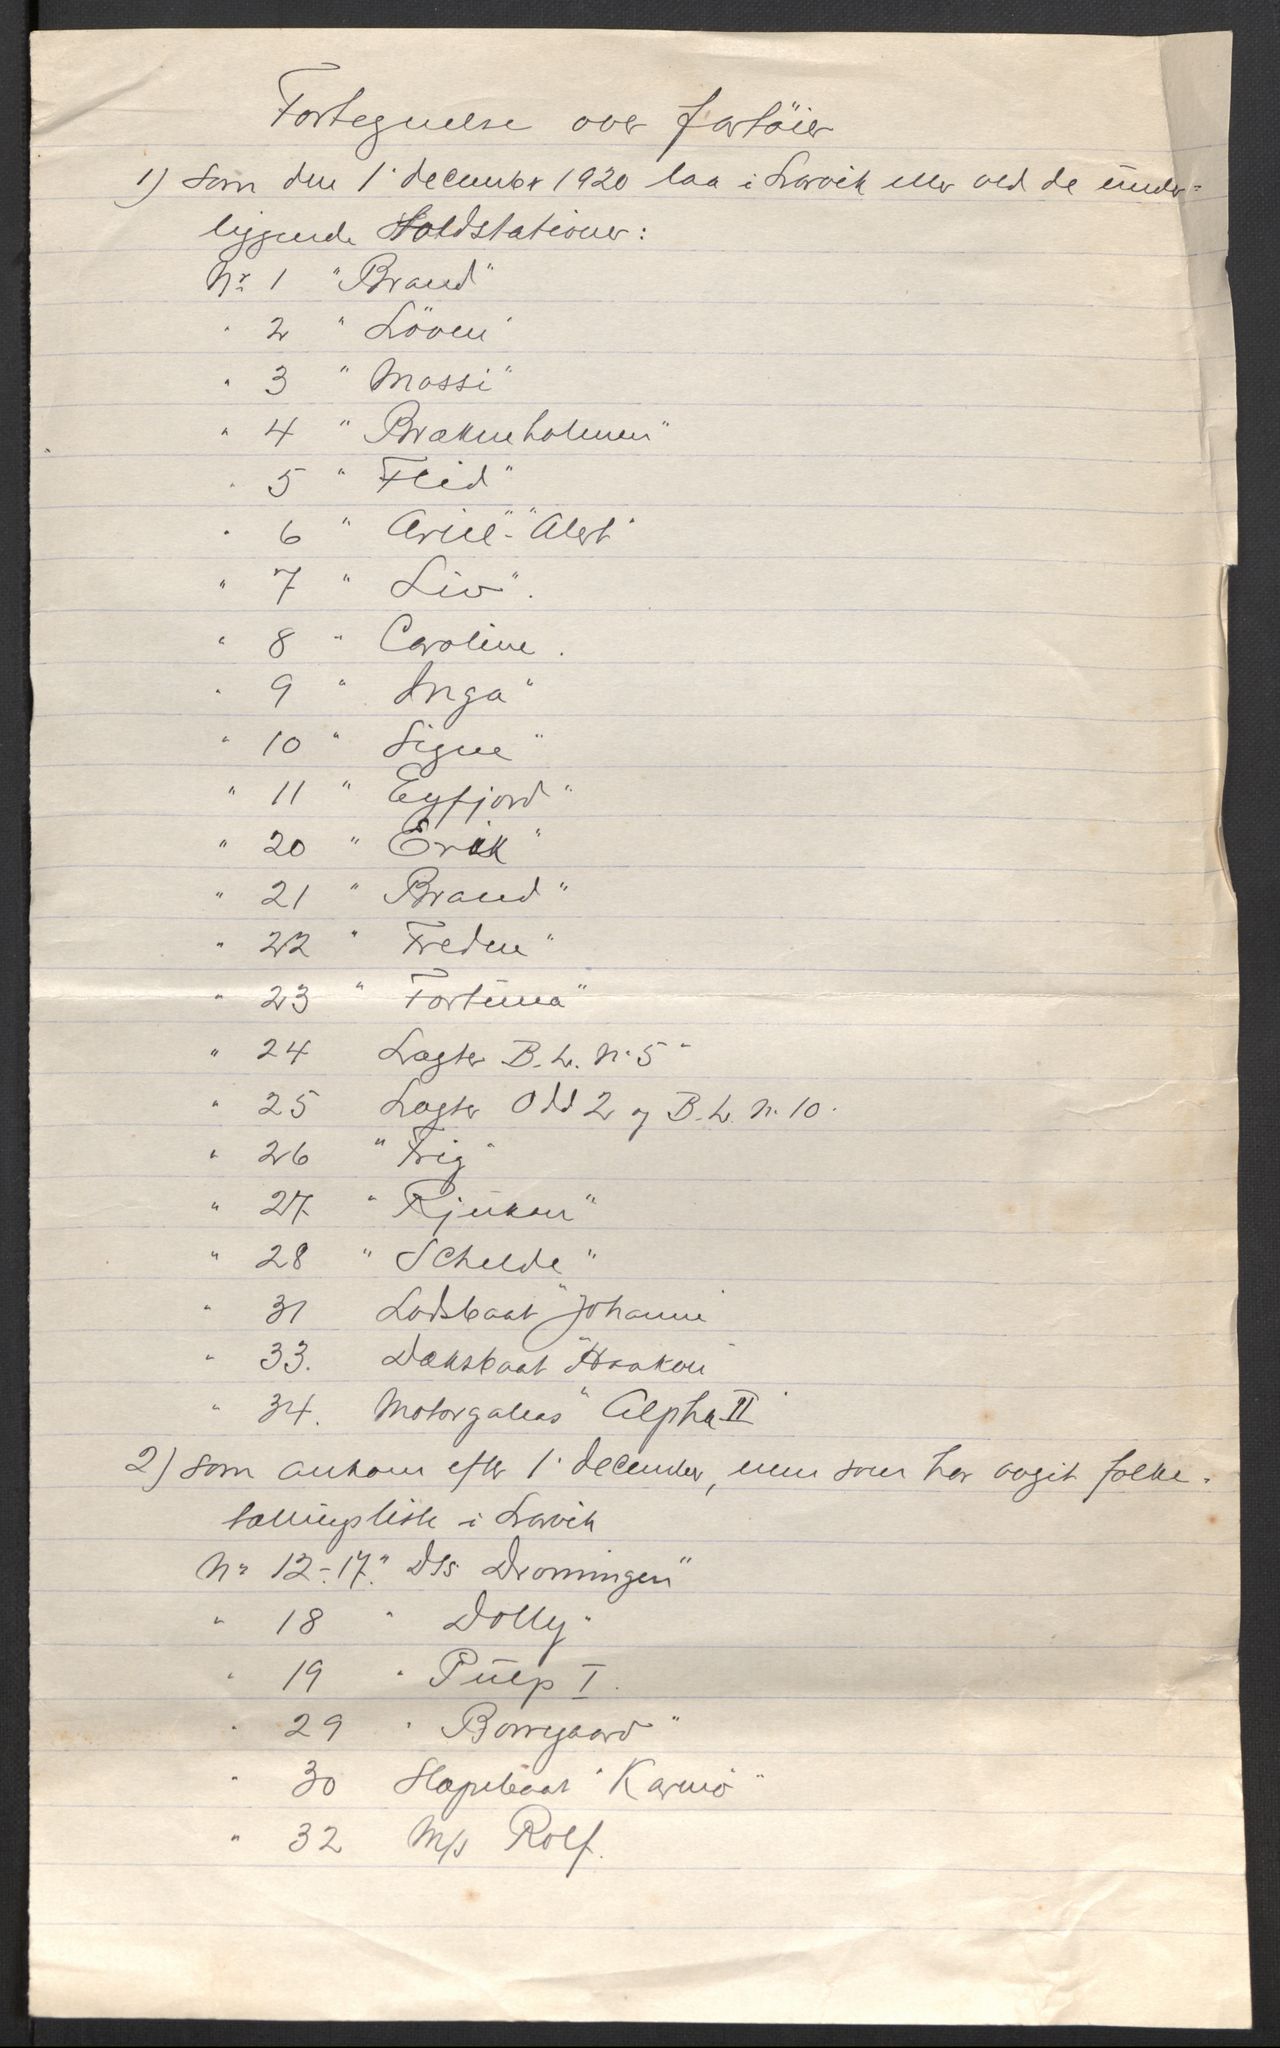 Fortegnelse over fartöier
1) som den 1' december 1920 laa i Larvik eller ved de under-
liggende Toldstationer:
Nr. 1 "Brand"
" 2 " Löven"
" 3 " Mossi"
" 4 " Brækneholmen"
" 5 " Flid"
" 6 " Ariel"-"Alert"
" 7 " Liv".
" 8 " Caroline.
" 9 " Inga"
" 10 " Signe"
" 11 " Eyfjord"
" 20 " Erik"
" 21 " Brand"
" 22 " Freden"
" 23 " Fortuna"
" 24 Lægter B. L. Nr. 5"
" 25 Lægter Odd 2 og B. L. Nr. 10.
" 26 " Frig"
" 27 " Rjukan"
" 28 " Schelde"
" 31 Lodsbaat "Johanne"
" 33. Dæksbaat "Haakon"
" 34. Motorgaleas "Alpha II"
2) som ankom efter 1' december, men som har avgit folke-
tællingsliste i Larvik
Nr. 12-17." D/S Dronningen"
" 18 " Dolly"
" 19 " Pulp I.
" 29 " Borregaard"
" 30 Slæpebaat "Karmö"
" 32 M/S Rolf.